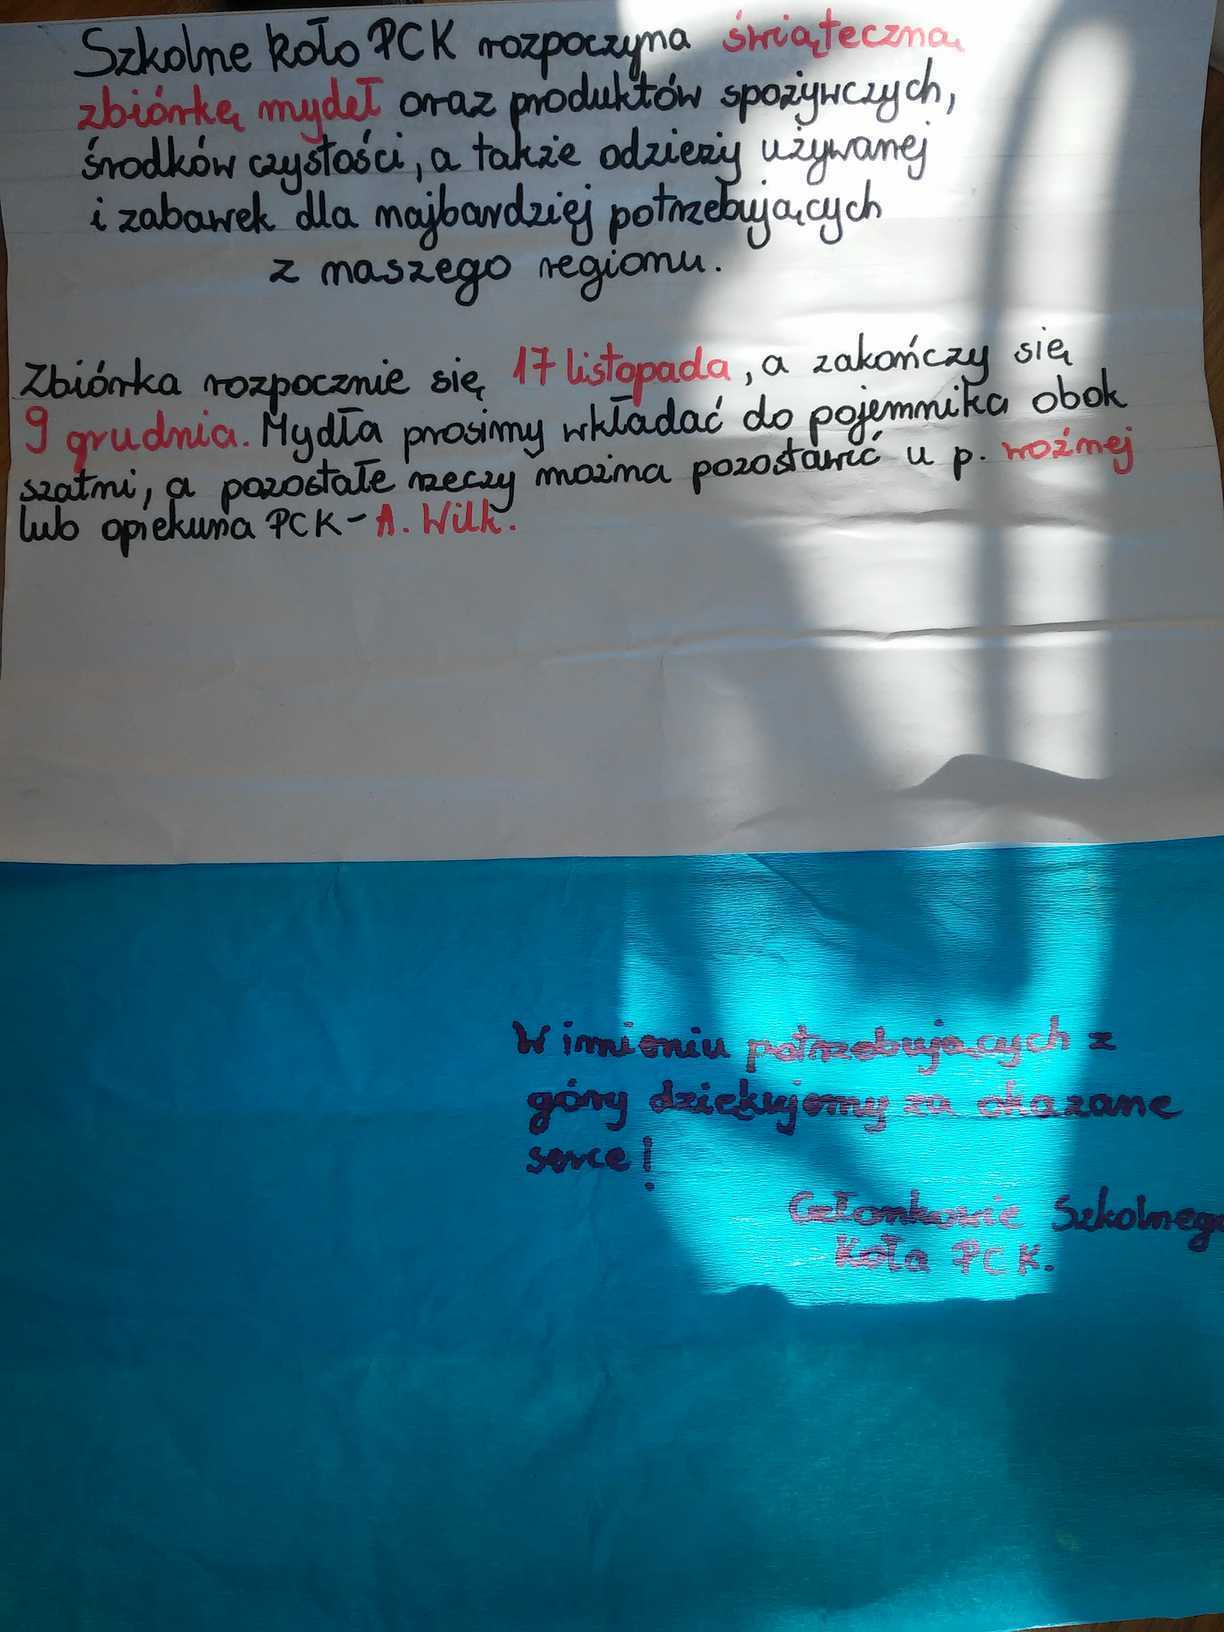 Szkolne koło PCK rozpoczyna świąteczną
zbiórkę mydeł oraz produktów spożywczych,
środków czystości, a także odzieży używanej
i zabawek dla najbardziej potrzebujących
z naszego regionu.
Zbiórka rozpocznie się 17 listopada, a zakończy się
9 grudnia. Mydła prosimy wkładać do pojemnika obok
szatni, a pozostałe rzeczy można pozostawić u p. woźnej
lub opiekuna PCK - A. Wilk.
W imieniu potrzebujących z
góry dziękujemy za okazane
serce!
Członkowie Szkolnego
Koła PCK.